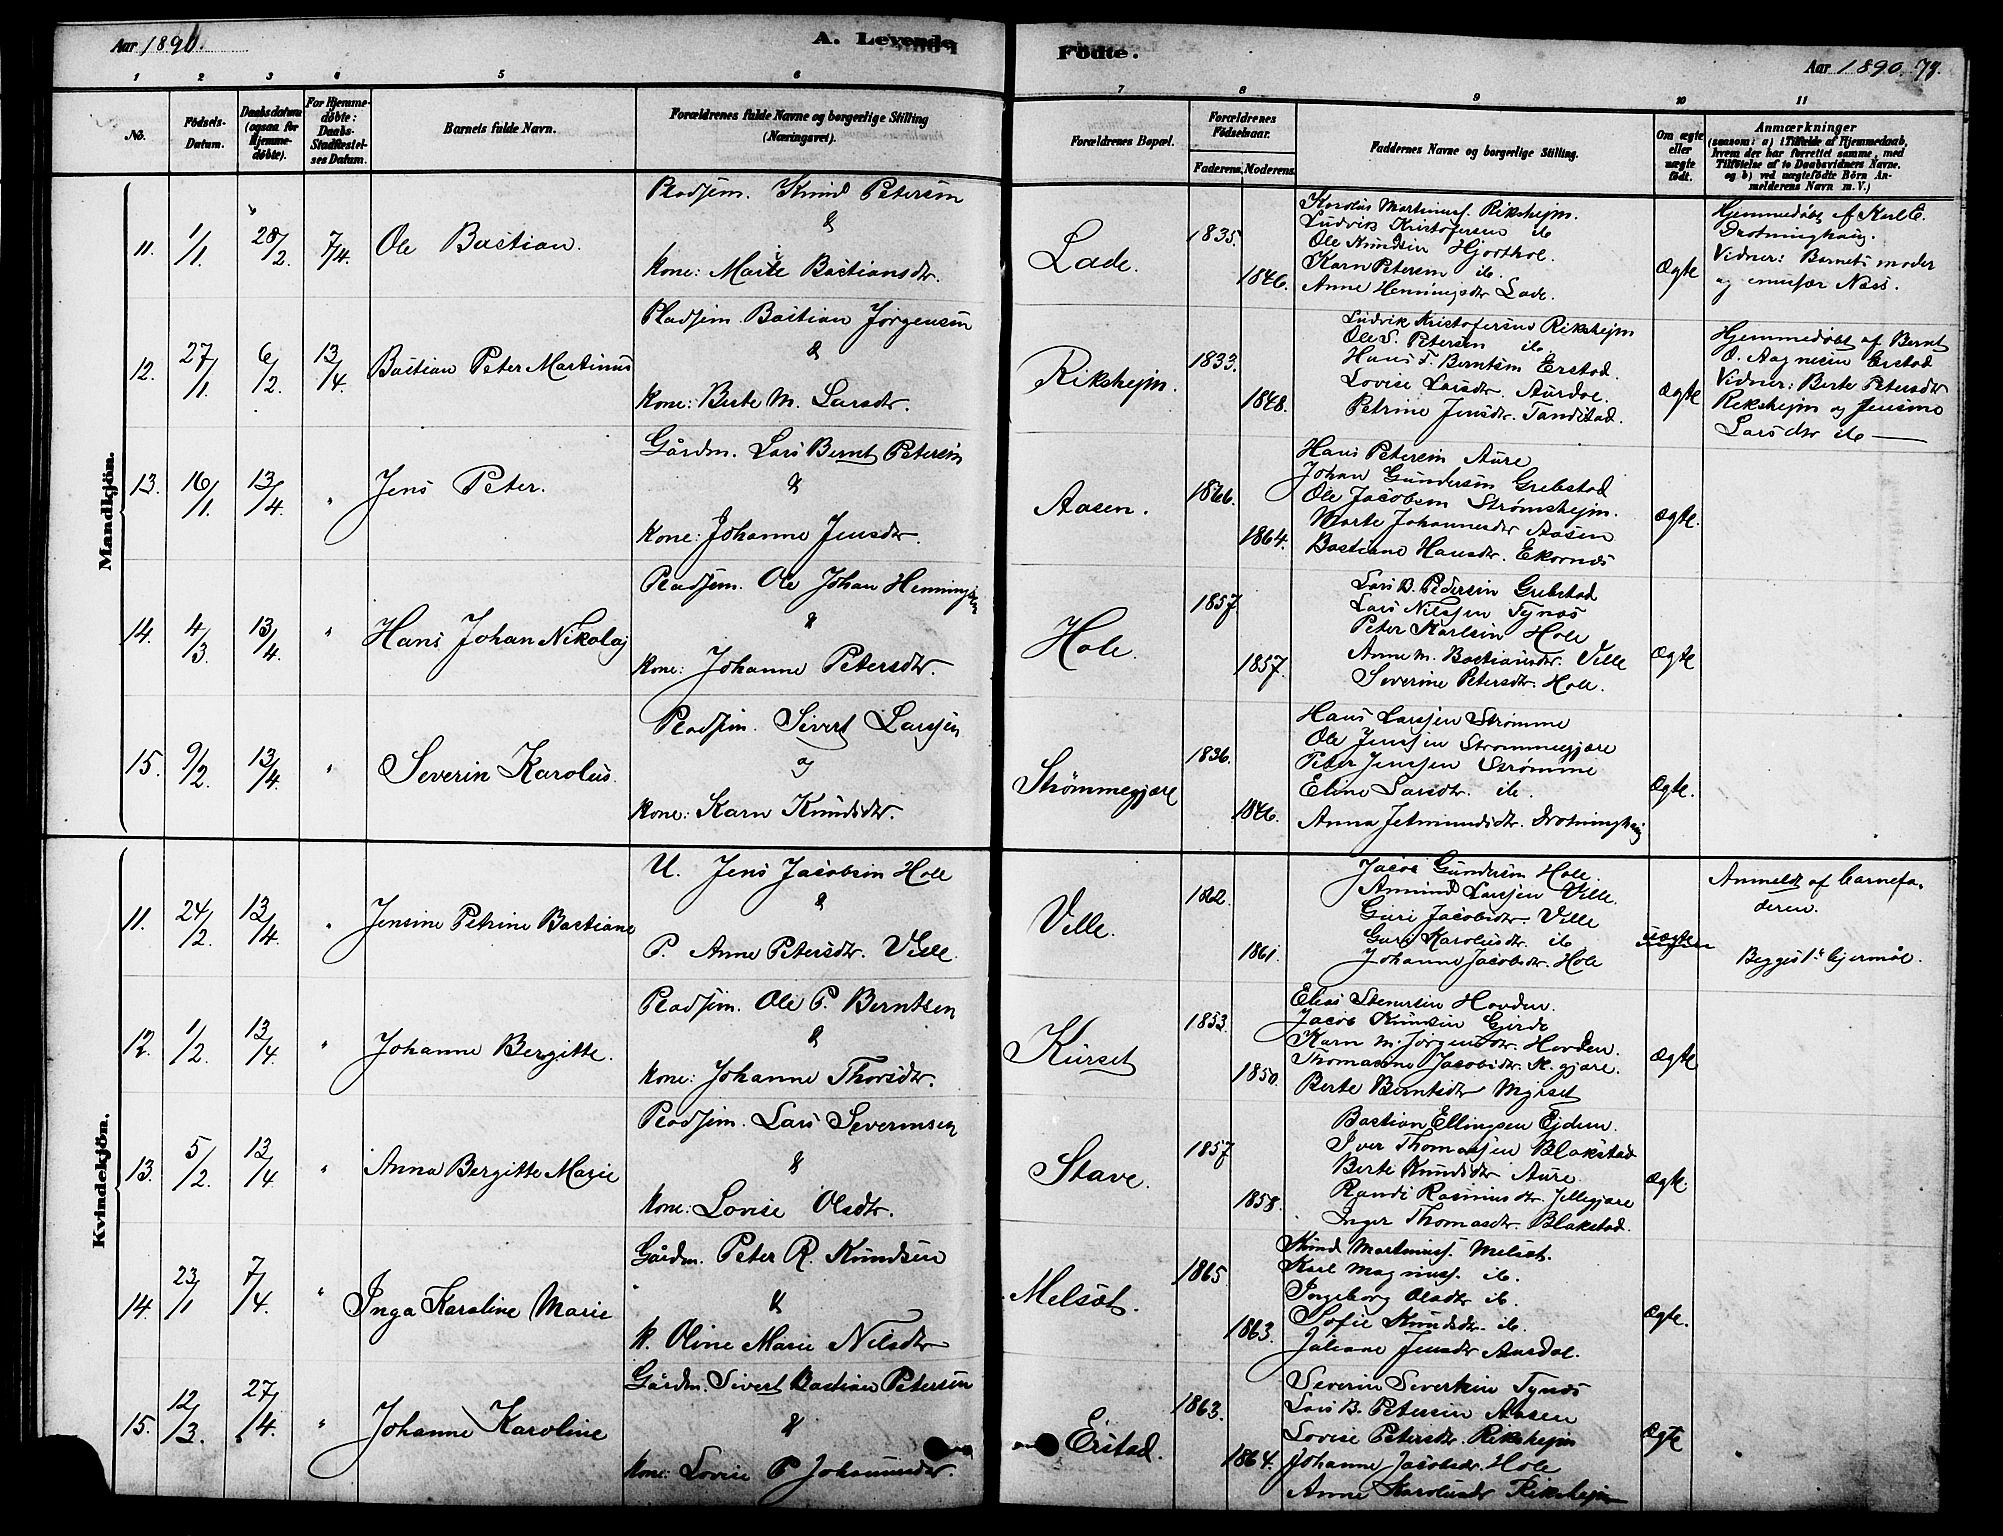 Aar 1890.
A. Levende
Födte.
Aar 1890. 73.
1 2 3 4 5 6
7 8 9 10 11
No.
Födsels-
Datum.
Daabsdatum
(ogsaa for
Hjemme-
døbte).
For Hjemme-
døbte:
Daabs-
Stadfæstel-
ses Datum.
Barnets fulde Navn.
Forældrenes fulde Navne og borgerlige Stilling
(Næringsvei).
Forældrenes Bopæl.
Forældrenes
Fødselsaar.
Faderens. Moderens.
Faddernes Navne og borgerlige Stilling.
Om ægte
eller
uægte
født.
Anmærkninger
(saasom: a) i Tilfælde af Hjemmedaab,
hvem der har forrettet samme, med
Tilføielse af to Daabsvidners Navne,
og b) ved uægtefødte Börn An-
melderens Navn m. V.)
Mandkjön.
11. 1/1. 28/2. 7/4. Ole Bastian.
Pladsem. Knud Petersen
&
Kone: Marte Bastiansdtr.
Lade.
1835.
1846.
Karolus Martinusf. Rikshejm.
Ludvik Kristofersen ib
Ole Knudsen Hjorthol.
Karn Petersen ib.
Anne Henningsdtr Lade.
Ægte
Hjemmedøbt af Karl E.
Drotninghaug.
Vidner: Barnets moder
12. 27/1. 6/2. 13/4. Bastian Peter Martinus
Pladsem. Bastian Jørgensen
&
Kone: Berte M. Larsdtr.
Rikshejm.
1833.
1848.
Ludvik Kristofersen Rikshejm
Ole S. Petersen ib
Hans T. Berntsen Erstad.
Lovise Larsdtr. Aurdal.
Petrine Jensdtr. Tandstad.
Ægte
Hjemmedøbt af Bernt
O. Aagnesen Erstad
Vidner: Berte Petersdtr
Rikshejm og Jensine
Larsdtr ib
13. 16/1. 13/4. " Jens Peter.
Gårdm. Lars Bernt Petersen
&
Kone: Johanne Jensdtr.
Aasen.
1866.
1864.
Hans Petersen Aure
Johan Gundersen Grebstad
Ole Jacobsen Strømshejm.
Marte Johannesdtr Aasen
Bastiane Hansdtr. Ekornæs
Ægte.
14. 4/3. 13/4. " Hans Johan Nikolaj
Pladsem. Ole Johan Henningsen
&
Kone: Johanne Petersdtr.
Hole.
1857
1857.
Lars B. Pedersen Grebstad
Lars Nilssen Tynæs
Peter Karlsen Hole
Anne M. Bastiansdtr. Ville
Severine Petersdtr. Hole.
Ægte
15. 9/2. 13/4. " Severin Karolus.
Pladsem. Sivert Larssen
og
Kone: Karn Knudsdtr.
Strømmegjære
1836.
1846.
Hans Larssen Strømme
Ole Jenssen Strommegjære
Peter Jenssen Strømme
Eline Larsdtr. ib.
Anna Jetmundsdtr. Drotninghaug
Ægte.
Kvindekjön.
11. 24/2. 13/4. " Jensine Petrine Bastiane
U. Jens Jacobsen Hole
&
P. Anne Petersdtr. Ville.
Ville.
1862.
1861.
Jacob Gundersen Hole.
Amund Larssen Ville.
Guri Jacobsdtr. Ville
Guri Karolusdtr. ib
Johanne Jacobsdtr. Hole
uægte
Anmeldt af barnefa-
deren.
Begges 1ste lejermål.
12. 1/2. 13/4. " Johanne Bergitte.
Pladsem. Ole P. Berntsen
&
Kone: Johanne Thorsdtr.
Kurset
1853.
1850.
Elias Stenersen Hovden.
Jacob Knudsen Gjerde
Karn M. Jørgensdtr. Hovden.
Thomasine Jacobsdtr. St. gjære.
Berte Berntsdtr Myrset
Ægte
13. 5/2. 13/4. " Anna Bergitte Marie
Pladsem. Lars Severinsen
&
Kone: Lovise Olsdtr.
Stave.
1857
1858.
Bastian Ellingsen Ejdem.
Iver Thomassen Blakstad
Berte Knudsdtr Aure
Randi Rasmusdtr. Jellegjære
Inger Thomasdtr. Blakstad.
Ægte.
14. 23/1 7/4. " Inga Karoline Marie
Gårdm. Peter R. Knudsen
&
K. Oline Marie Nilsdtr
Melsæt.
1865
1863.
Knud Martinusf. Melsæt.
Karl Magnusf. ib.
Ingeborg Olsdtr ib.
Sofie Knudsdtr. ib.
Juliane Jensdtr Aurdal.
Ægte.
15. 12/3. 27/4. " Johanne Karoline
Gårdm. Sivert Bastian Petersen
&
Kone: Lovise P. Johannesdtr.
Erstad.
1863.
1864.
Severin Severtsen Tynæs
Lars B. Petersen Aasen
Lovise Petersdtr. Rikshejm
Johanne Jacobsdtr. Hole
Anne Karolusdtr Rikshejm
Ægte